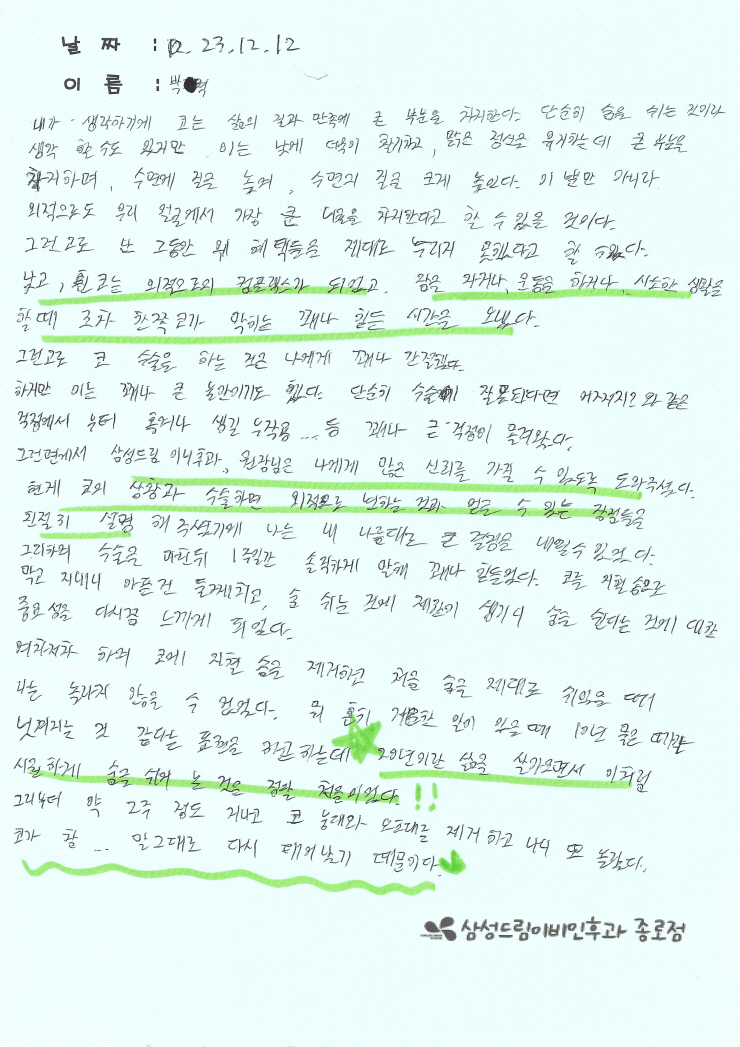 날 짜 : 23.12.12
이 름 : 박
내가 생각하기에 코는 삶의 질과 만족에 큰 부분을 차지한다. 단순히 숨을 쉬는 것이라
생각 할 수도 있지만 이는 낮에 더욱이 활기차고, 맑은 정신을 유지하는데 큰 부분을
차지하며, 수면에 질을 높여, 수면의 질을 크게 높인다. 이 뿐만 아니라
외적으로도 우리 얼굴에서 가장 큰 비율을 차지한다고 할 수 있을 것이다.
그런고로 난 그동안 위 혜택들을 제대로 누리지 못했다고 할 수 있다.
낮고, 휜 코는 외적으로의 컴플렉스가 되었고. 잠을 자거나, 운동을 하거나, 사소한 생활을
할 때 조차 한쪽 코가 막히는 꽤나 힘든 시간을 보냈다.
그런고로 코 수술을 하는 것은 나에게 꽤나 간절했다.
하지만 이는 꽤나 큰 불안이기도 했다. 단순히 수술이 잘못된다면 어쩌지? 와 같은
걱정에서 부터 혹여나 생길 부작용 ... 등 꽤나 큰 걱정이 몰려왔다.
그런면에서 삼성드림 이비후과, 원장님은 나에게 많은 신뢰를 가질 수 있도록 도와주셨다.
현재 코의 상황과 수술하면 외적으로 변하는 것과 얻을 수 있는 장점들을
친절히 설명 해 주셨기에 나는 내 나름대로 큰 결정을 내릴 수 있었다.
그리하여 수술을 마친뒤 1주일간 솔직하게 말해 꽤나 힘들었다. 코를 지혈솜으로
막고 지내니 아픈건 둘째치고, 숨 쉬는 것에 제한이 생기니 숨을 쉰다는 것에 대한
중요성을 다시끔 느끼게 되었다.
여차저차 하여 코에 지혈 솜을 제거하고 처음 숨을 제대로 쉬었을 때
나는 놀라지 않을 수 없었다. 뭐 흔히 개운한 일이 있을 때 10년 묵은 때가
벗겨지는 것 같다는 표현을 하곤 하는데 20년이란 삶을 살아오면서 이처럼
시원하게 숨을 쉬어 본 것은 정말 처음이었다. !!
그리부터 약 2주 정도 지나고 코 붕대와 보호대를 제거 하고 나서 또 놀랐다.
코가 참 ... 말 그대로 다시 태어났기 때문이다.
삼성드림이비인후과 종로점